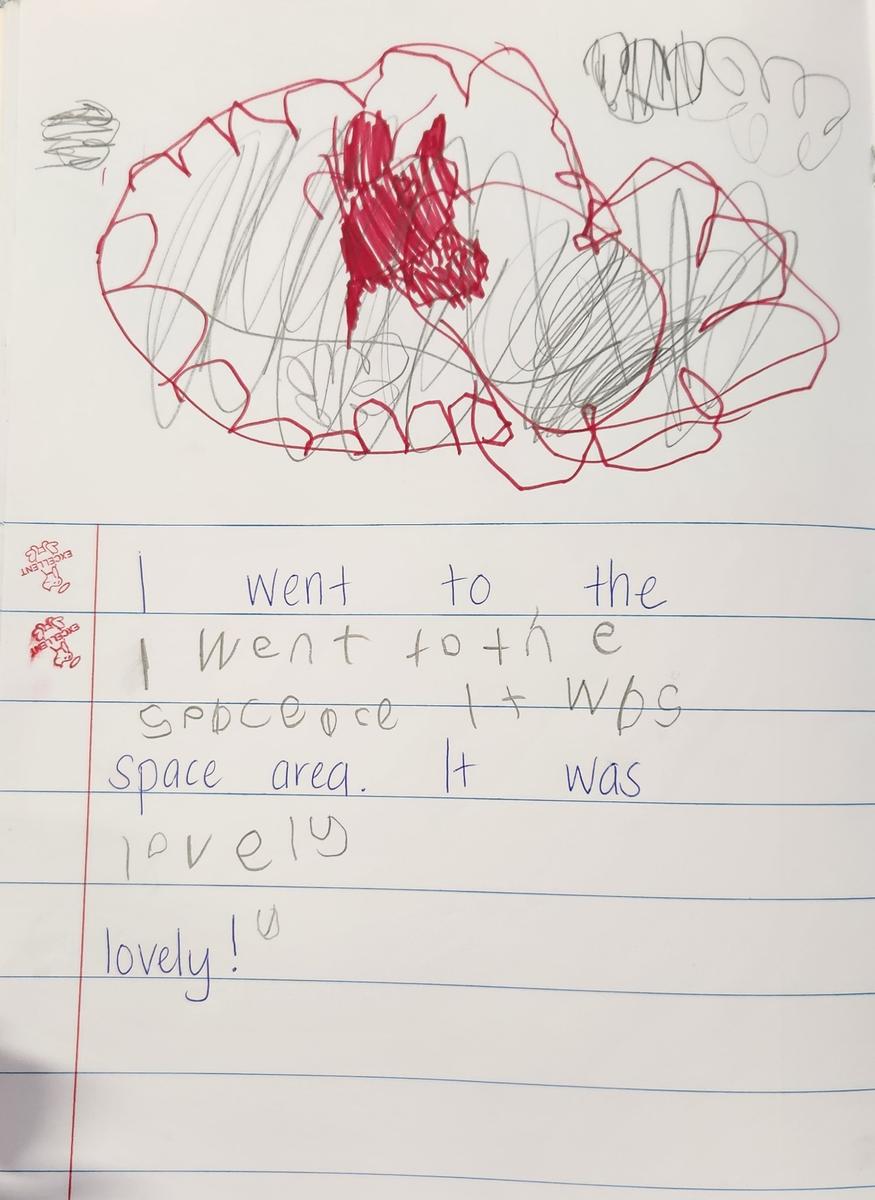 I went to the
EXCELLENT
I went to th e
EXCELLENT
spbceace It wbs
space area. It was
lovely
lovely!